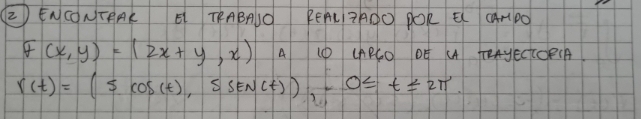 ② ENCONTRAR El TRABAJO REALIZADO POR EL CAMPO
F(x,y) = (2x+y, x) A LO LARGO DE LA TRAYECTORIA.
r(t) = (5 cos(t), 5 SEN(t)), 0≤ t ≤ 2π.